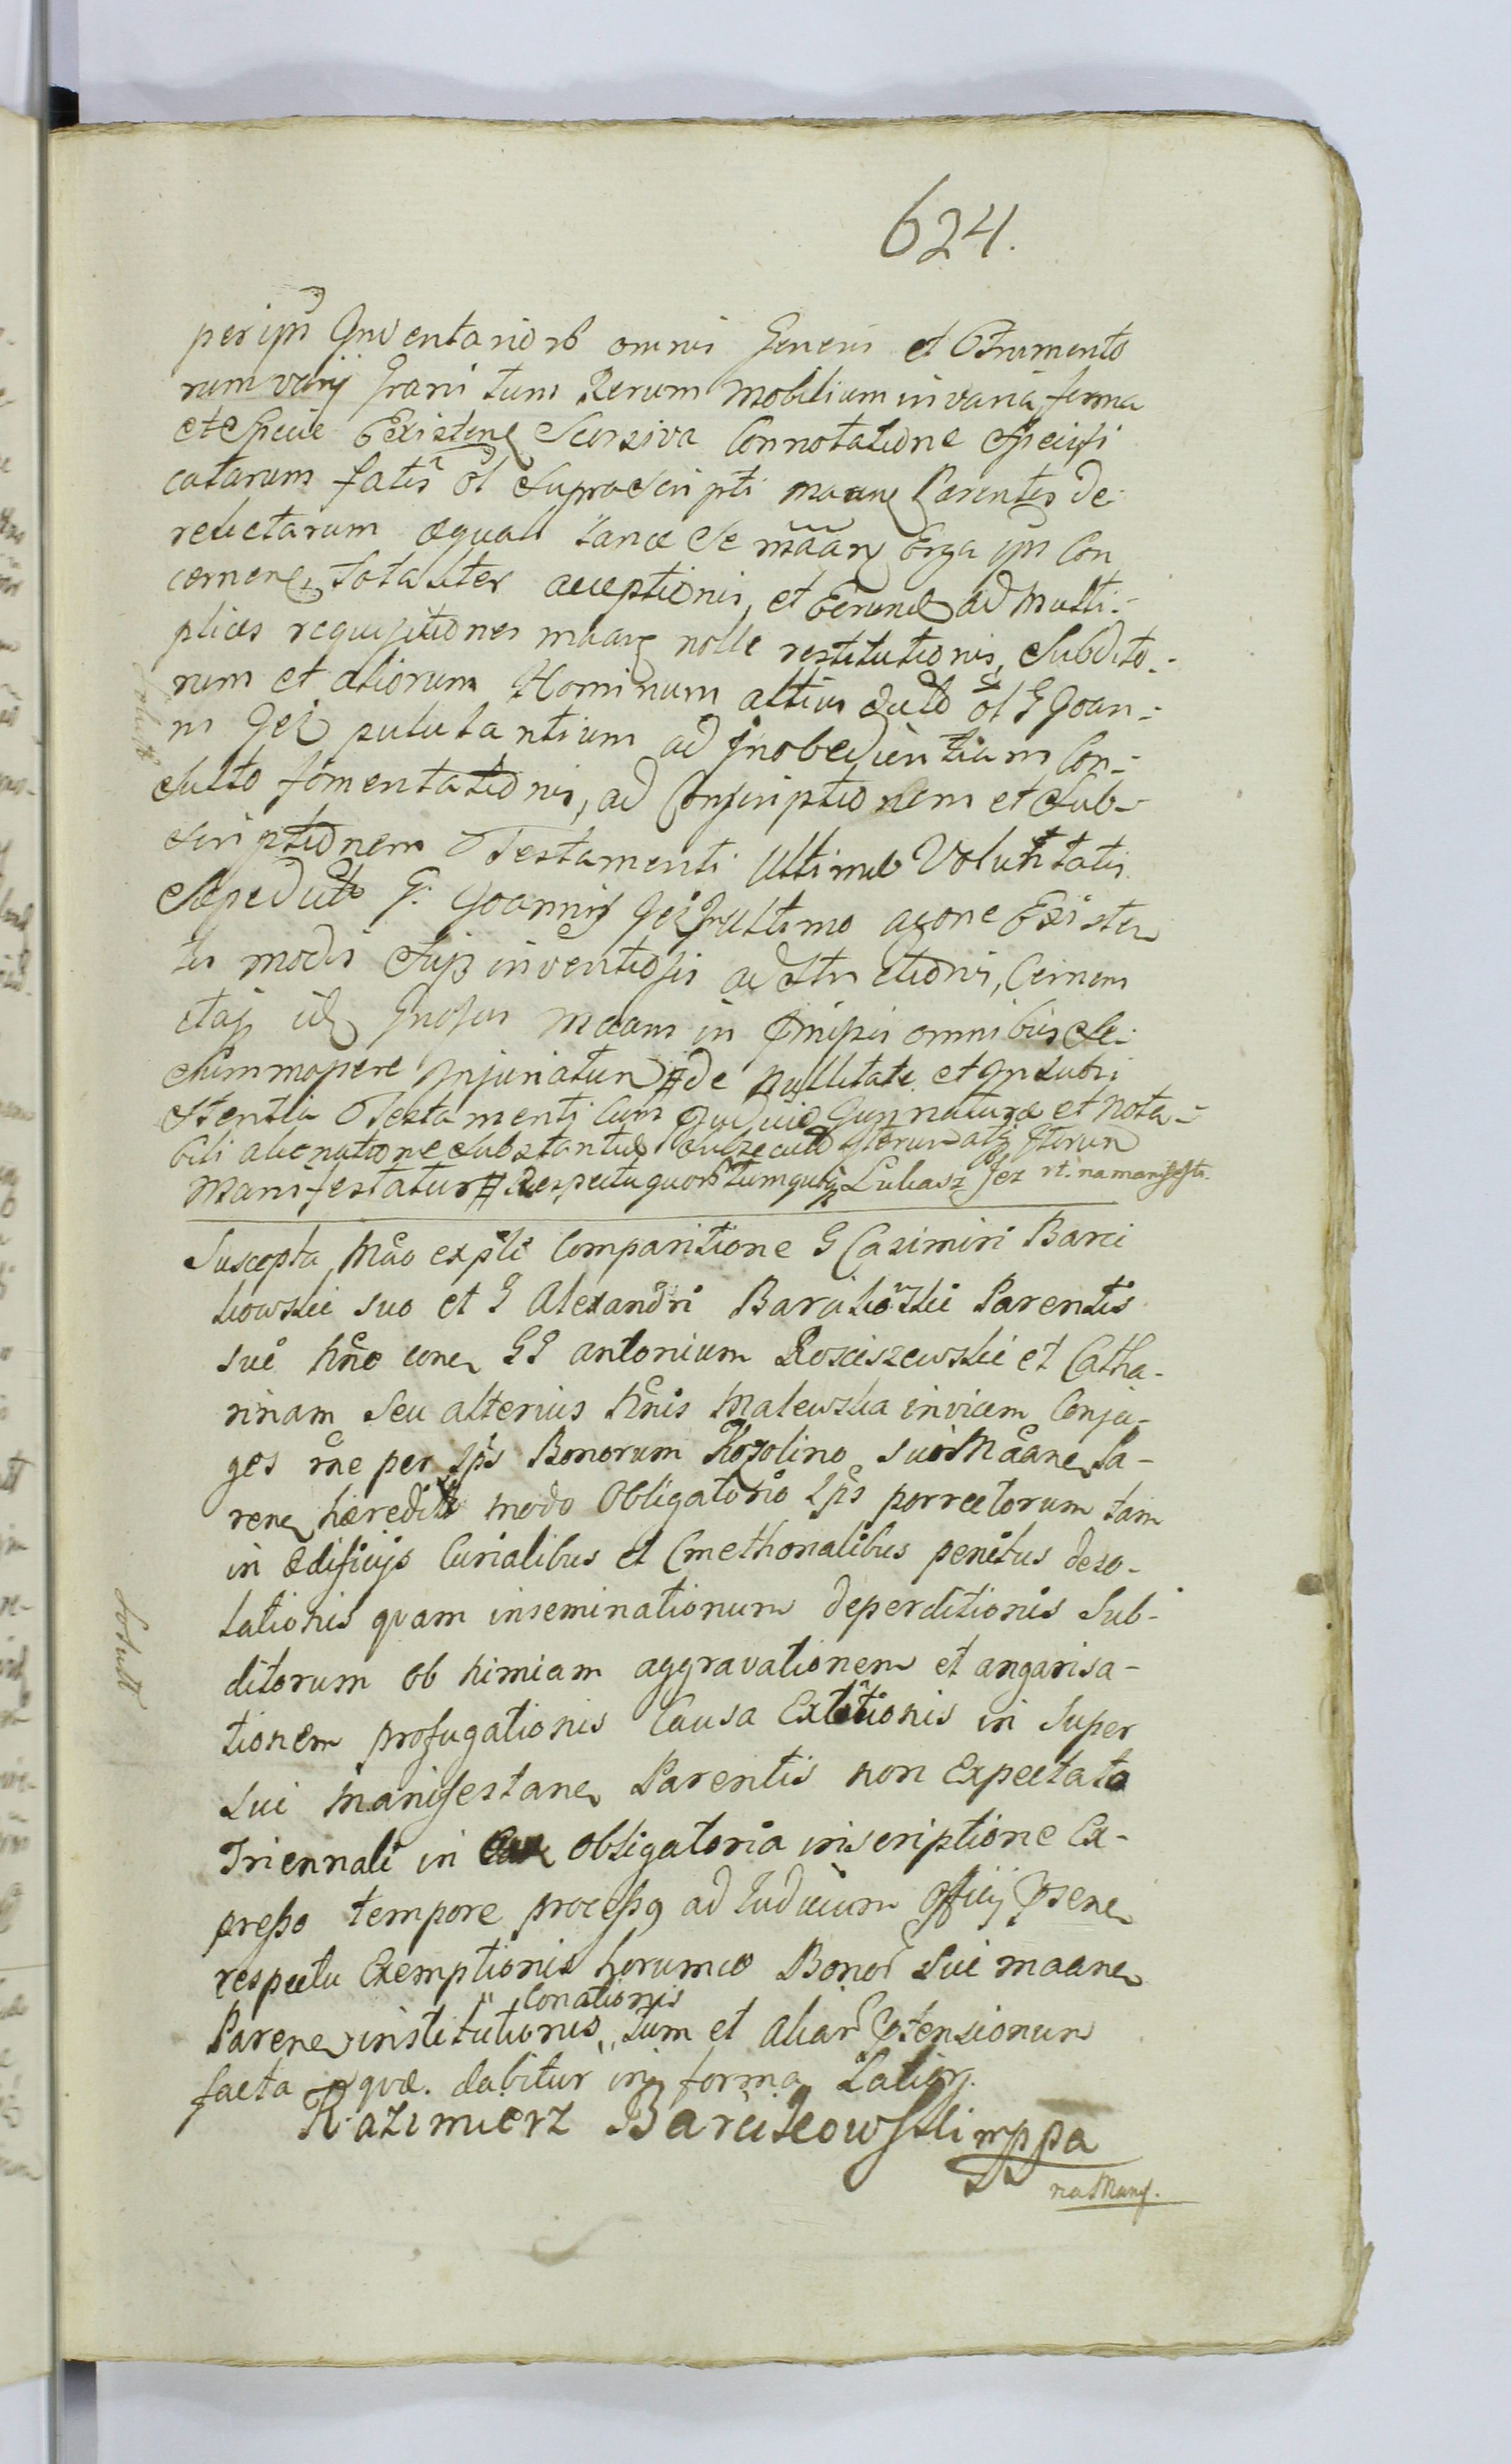 624.
per ips Inventariorb omnis Generis et Strumento
rum varij Grani tum Rerum Mobilium in varia forma
et Specie Existen Seorsiva Connotatione Specifi
catarum fatis ol Suprascripti maane Parentis de
relictarum æquali lance Se maan Erga ips Con
cernen, totaliter acceptionis, et Earund ad multi-
plices requisitiones maan nolle restitutionis, Subdito-
rum et aliorum Hominum altius dicto ol G Joan-
nis Jez ad Inobedientiam Con-
sulto fomentationis, ad Conscriptionem et Sub-
scriptionem Testamenti Ultimæ Voluntatis
Sæpedicti G. Joannis Jez in ultimo agone Existen
tis modis Suis inventiosis adstrictionis, Cernens
itaq id Grosus Maans in præmissis omnibus Se
Summopere Injuriatum # de Nullitate et Insubsi
stentia Testamenti cum præjudicio Gunnaturæ et nota-
bili alienatione Substantiæ Subsecuto Iterum atq Iterum
Manifestatur # Respectu quorb tumqutq Lukasz Jez rt. na manifest.
Suscepta Mão expti Comparitione G Casimiri Barci
kowski suo et G Alexandri Barcikowski Parentis
sui hño cone GG antonium Rosciszewski et Catha-
rinam Seu alterius hñis Malewska invicem Conju-
ges rãe per Ips Bonorum Kozolino sui Maane Pa-
rene hæredit modo Obligatorio Ips porrectorum tam
in Ædificijs Curialibus et Cmethonalibus penitus deso-
lationis quam inseminationum deperditionis Sub-
ditorum ob nimiam aggravationem et angarisa-
tionem profugationis Causa Extãtionis in super
Sui Manifestane Parentis non Expectato
Triennali in obligatoria inscriptione Ex-
presso tempore processq ad Iudicium Officij Psene
respectu Exemptionis horumce Bonor Sui maane
Parene institutionis, Conationis tum et aliar Ptensionum
facta quæ. dabitur in forma Latiori.
Kazimierz Barcikowski mppa
na Manif.
Solutt
Solutt